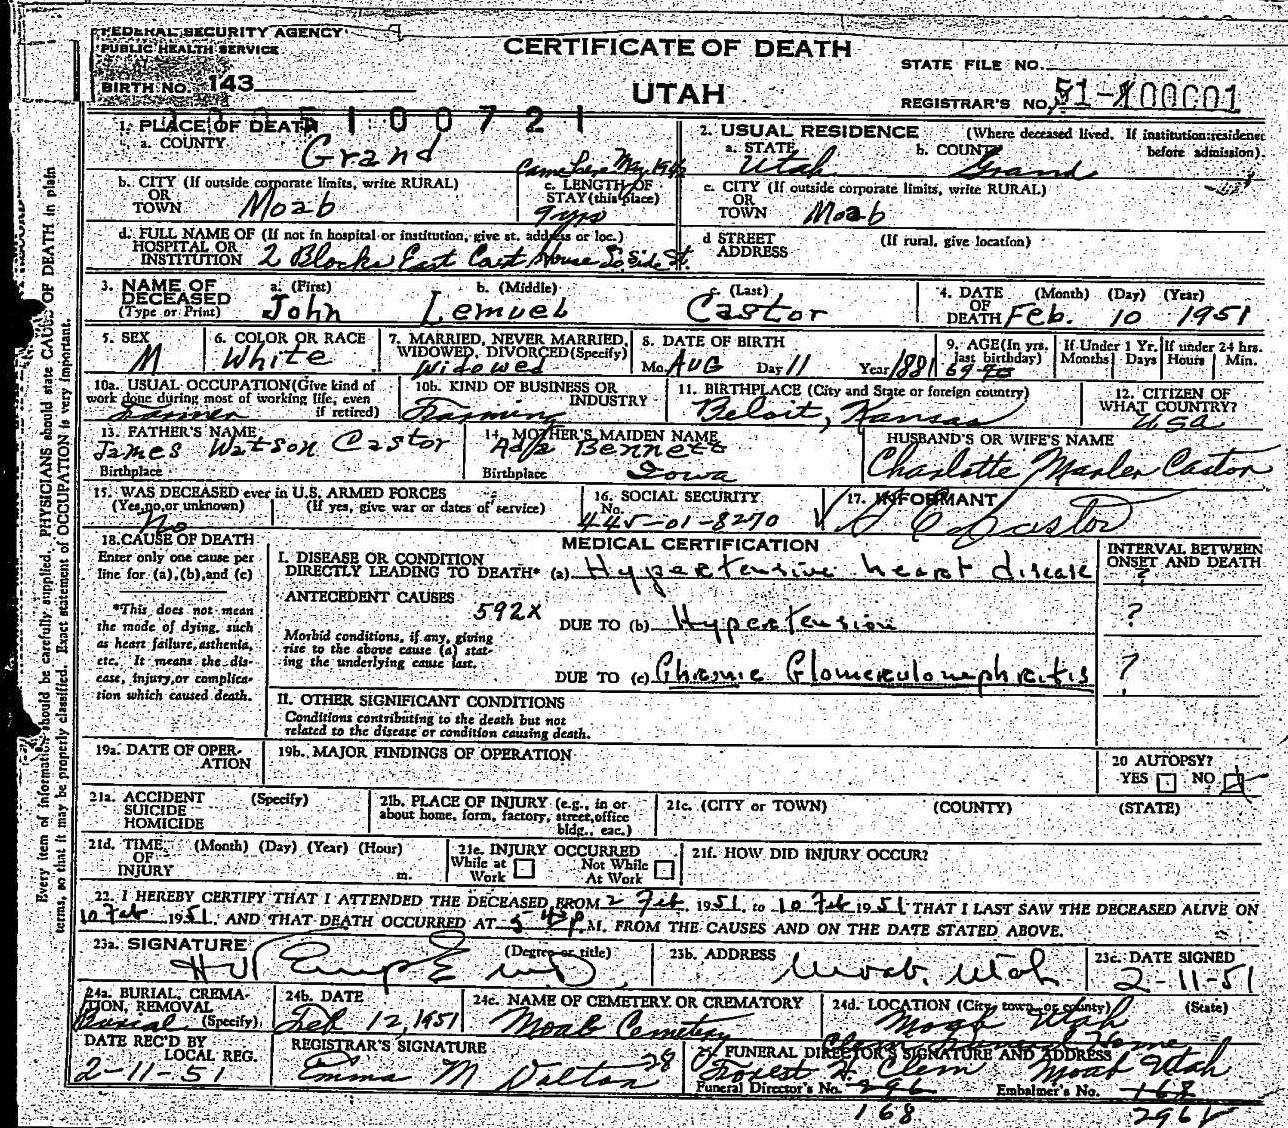 FEDERAL SECURITY AGENCY
PUBLIC HEALTH SERVICE
BIRTH NO. 143
CERTIFICATE OF DEATH
UTAH
STATE FILE NO.
REGISTRAR'S NO.
5100721
1. PLACE OF DEATH
a. COUNTY
Grand
2. USUAL RESIDENCE (Where deceased lived. If institution: residence before admission).
a. STATE Utah b. COUNTY Grand
b. CITY (If outside corporate limits, write RURAL)
OR
TOWN Moab
Came here May
c. LENGTH OF
STAY (this place)
9 yrs
c. CITY (If outside corporate limits, write RURAL)
OR
TOWN Moab
d. FULL NAME OF (If not in hospital or institution, give st. address or loc.)
HOSPITAL OR
INSTITUTION 2 Blocks East Cort House So Side St.
d STREET (If rural, give location)
ADDRESS
3. NAME OF
DECEASED
(Type or Print)
a. (First) b. (Middle) c. (Last)
John Lemuel Castor
4. DATE (Month) (Day) (Year)
OF
DEATH Feb. 10 1951
5. SEX
M
6. COLOR OR RACE
White
7. MARRIED, NEVER MARRIED,
WIDOWED, DIVORCED (Specify)
Widowed
8. DATE OF BIRTH
Mo. AUG Day 11 Year 1881
9. AGE (In yrs. last birthday)
69
If Under 1 Yr. Months Days
If under 24 hrs. Hours Min.
10a. USUAL OCCUPATION (Give kind of
work done during most of working life, even
if retired)
Farmer
10b. KIND OF BUSINESS OR
INDUSTRY
Farming
11. BIRTHPLACE (City and State or foreign country)
Beloit, Kansas
12. CITIZEN OF
WHAT COUNTRY?
USA
13. FATHER'S NAME
James Watson Castor
Birthplace
14. MOTHER'S MAIDEN NAME
Ada Bennett
Birthplace Iowa
HUSBAND'S OR WIFE'S NAME
Charlotte Marler Castor
15. WAS DECEASED ever in U.S. ARMED FORCES
(Yes, no, or unknown) (If yes, give war or dates of service)
No
16. SOCIAL SECURITY
No.
445-01-8270
17. INFORMANT
Castor
18. CAUSE OF DEATH
Enter only one cause per
line for (a), (b), and (c)
*This does not mean
the mode of dying, such
as heart failure, asthenia,
etc. It means the dis-
ease, injury, or complica-
tion which caused death.
MEDICAL CERTIFICATION
INTERVAL BETWEEN
ONSET AND DEATH
I. DISEASE OR CONDITION
DIRECTLY LEADING TO DEATH* (a) Hypertensive heart disease ?
ANTECEDENT CAUSES
592x
DUE TO (b) Hypertension ?
Morbid conditions, if any, giving
rise to the above cause (a) stat-
ing the underlying cause last.
DUE TO (c) Chronic Glomerulonephritis ?
II. OTHER SIGNIFICANT CONDITIONS
Conditions contributing to the death but not
related to the disease or condition causing death.
19a. DATE OF OPER-
ATION
19b. MAJOR FINDINGS OF OPERATION
20 AUTOPSY?
YES NO
21a. ACCIDENT (Specify)
SUICIDE
HOMICIDE
21b. PLACE OF INJURY (e.g., in or
about home, form, factory, street, office
bldg., eac.)
21c. (CITY or TOWN) (COUNTY) (STATE)
21d. TIME (Month) (Day) (Year) (Hour)
OF
INJURY m.
21e. INJURY OCCURRED
While at Work Not While At Work
21f. HOW DID INJURY OCCUR?
22. I HEREBY CERTIFY THAT I ATTENDED THE DECEASED FROM 2 Feb 1951 to 10 Feb 1951 THAT I LAST SAW THE DECEASED ALIVE ON
10 Feb 1951. AND THAT DEATH OCCURRED AT M. FROM THE CAUSES AND ON THE DATE STATED ABOVE.
23a. SIGNATURE (Degree or title)
23b. ADDRESS
Moab, Utah
23c. DATE SIGNED
2-11-51
24a. BURIAL, CREMA-
TION, REMOVAL
(Specify)
Burial
24b. DATE
Feb 12, 1951
24c. NAME OF CEMETERY OR CREMATORY
Moab Cemetery
24d. LOCATION (City, town, or county) (State)
Moab Utah
DATE REC'D BY
LOCAL REG.
2-11-51
REGISTRAR'S SIGNATURE
Emma M Dalton
Clem Funeral Home
25. FUNERAL DIRECTOR'S SIGNATURE AND ADDRESS
Forest H. Clem Moab Utah
Funeral Director's No. 296 Embalmer's No. 168
168 296
Every item of information should be carefully supplied. PHYSICIANS should state CAUSE OF DEATH in plain
terms, so that it may be properly classified. Exact statement of OCCUPATION is very important.